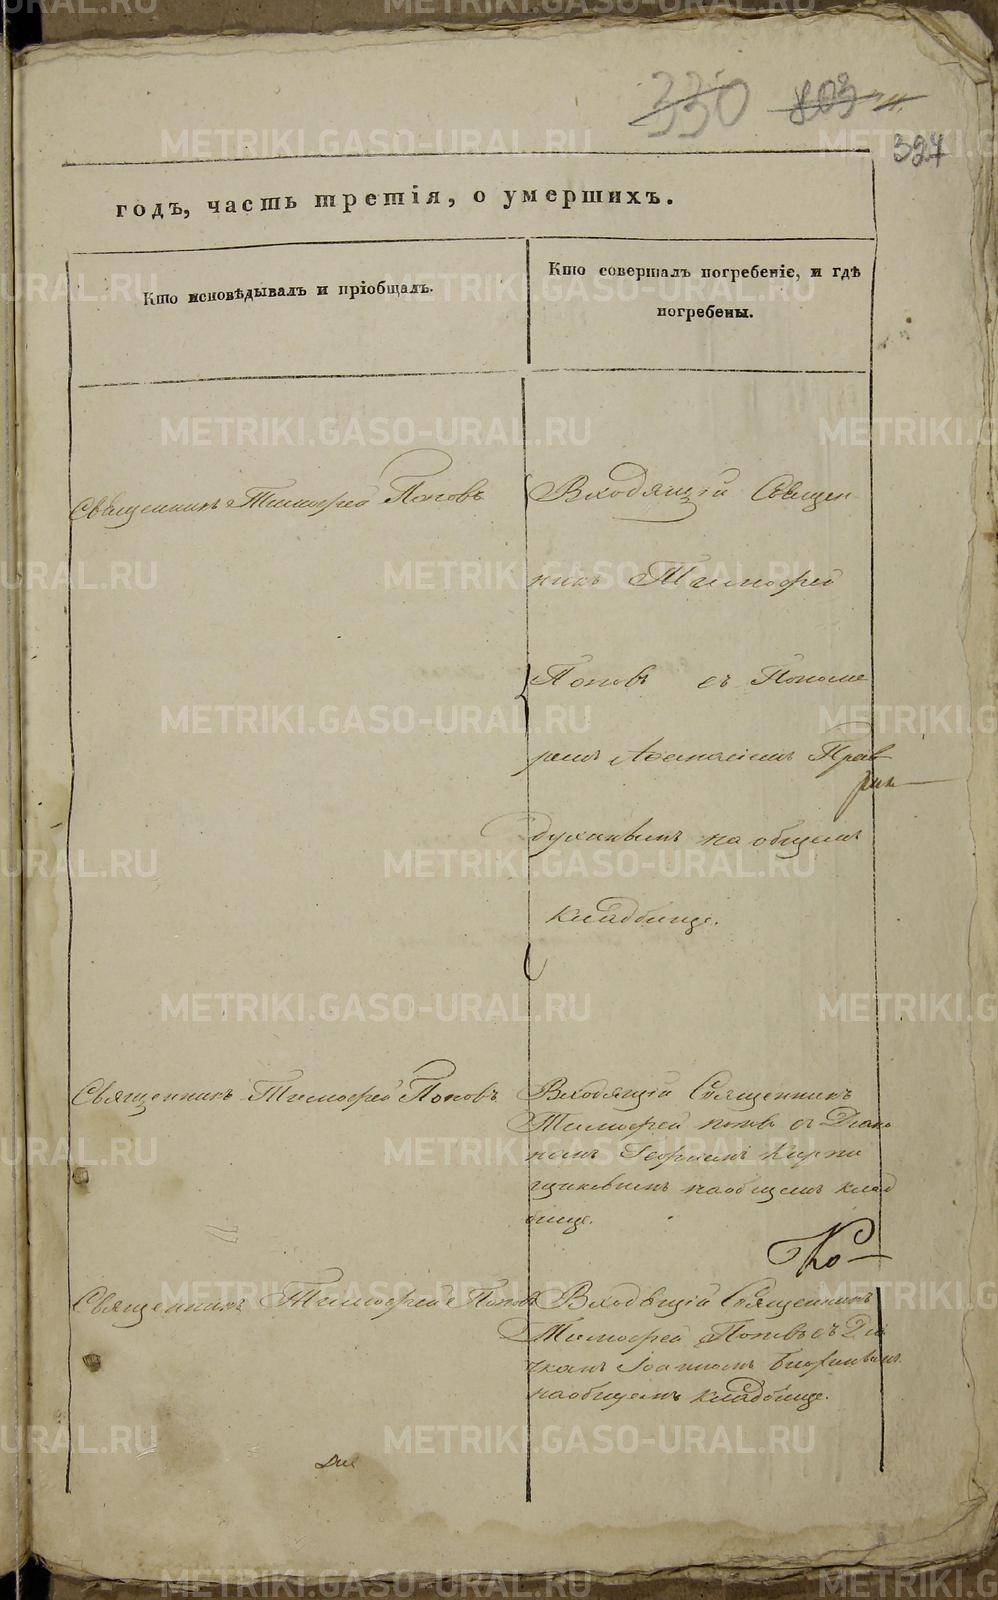 330 803
327
годъ, часть третія, о умершихъ.
Кто исповѣдывалъ и пріобщалъ.
Кто совершалъ погребеніе, и гдѣ
погребены.
Священникъ Тимофей Поповъ
Входящій Священ
никъ Тимофей
Поповъ съ Пономе
ремъ Афанасіемъ
на общемъ
кладбище.
Священникъ Тимофей Поповъ
Входящій Священникъ
Тимофей поповъ съ Диако
номъ Георгіемъ Кирпи
щиковымъ на общемъ клад
бище.
Священникъ Тимофей Поповъ
Входящій Священникъ
Тимофей Поповъ съ Дья
чкомъ Іоанномъ
на общемъ кладбище.
METRIKI.GASO-URAL.RU